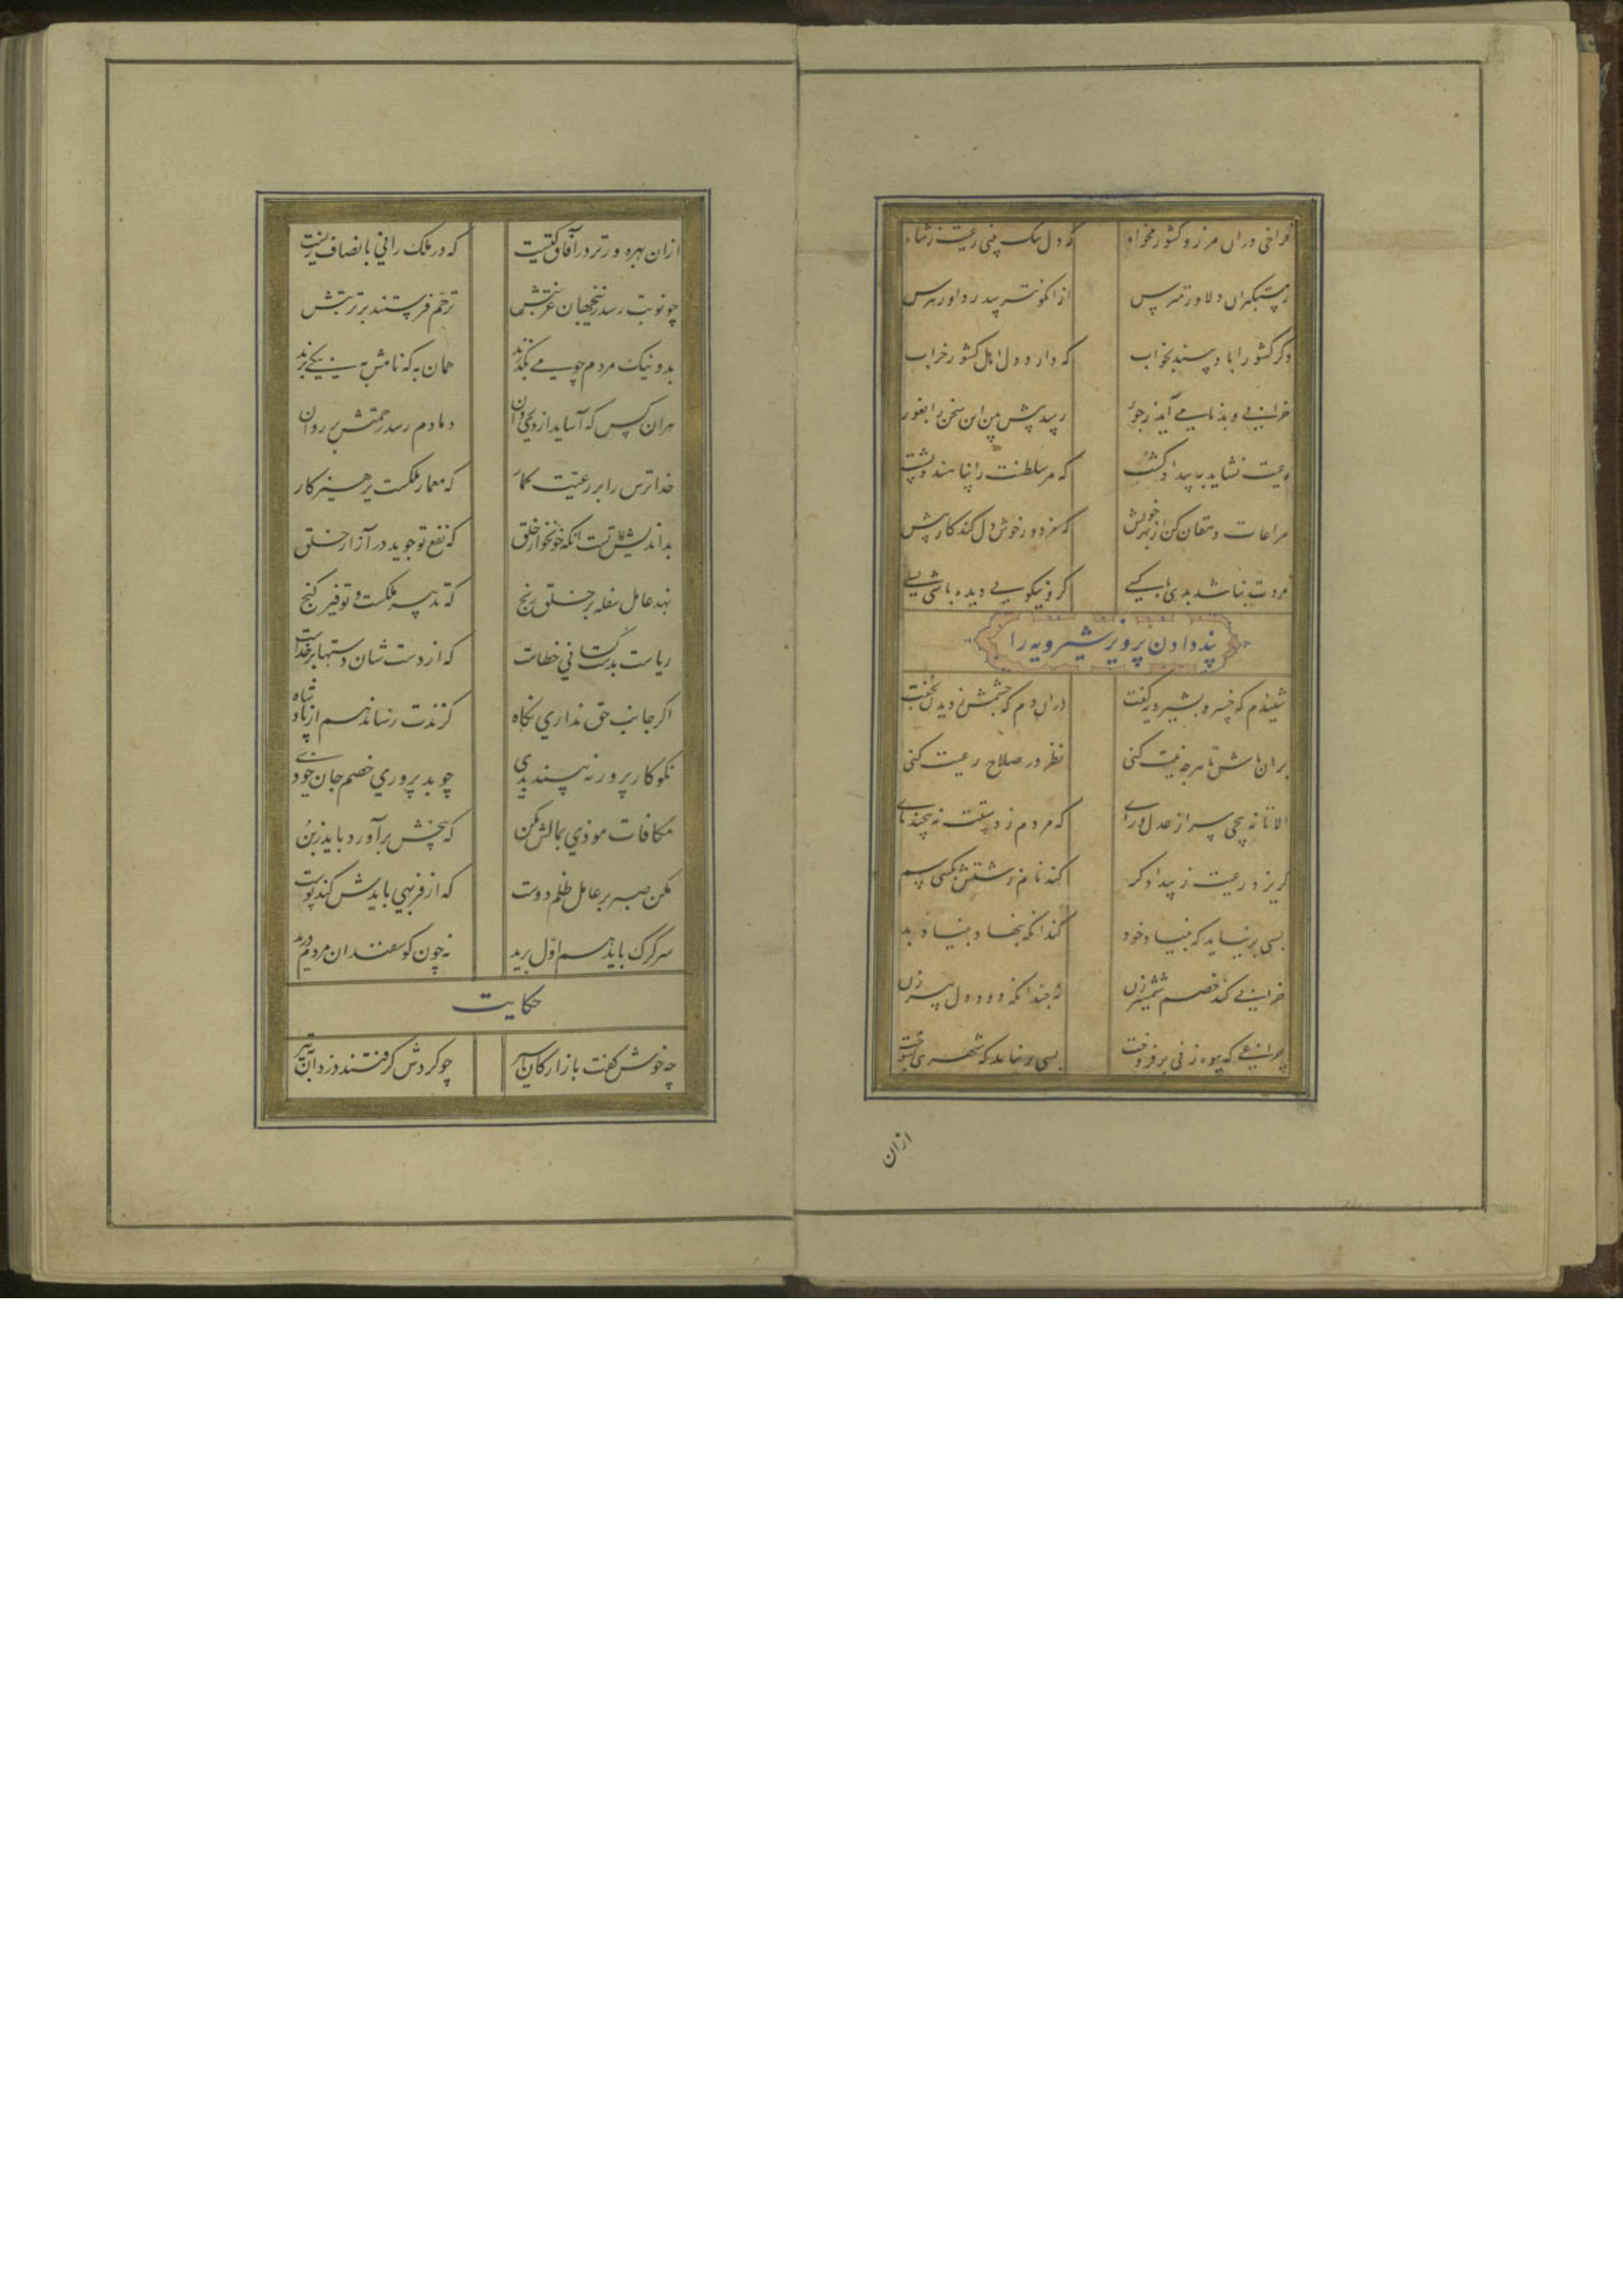 فراخی دران مرز و کشور مخواه که دل تنگ بینی رعیت ز شاه
ز مستکبران دلاور بترس ازان کو نترسد ز داور بترس
دگر کشور اباد بیند بخواب که دارد دل اهل کشور خراب
خرابی و بدنامی آید ز جور رسد پیش بین این سخن را بغور
رعیت نشاید به بیداد کشت که مر سلطنت را پناهند و پشت
مراعات دهقان کن از بهر خویش که مزدور خوش دل کند کار بیش
مروت نباشد بدی با کسی کزو نیکویی دیده باشی بسی
پند دادن پرویز شیرویه را
شنیدم که خسرو بشیرویه گفت دران دم که چشمش ز دیدن بخفت
بران باش تا هرچه نیت کنی نظر در صلاح رعیت کنی
الا تا نه پیچی سر از عدل و رای که مردم ز دستت نه پیچند پای
گریزد رعیت ز بیدادگر کند نام زشتش بگیتی سمر
بسی بر نیاید که بنیاد خود کند انکه بنهاد بنیاد بد
خرابی کند خصم شمشیر زن نه چندانکه دود دل پیر زن
چراغی که بیوه زنی بر فروخت بسی بر نیاید که شهری بسوخت
ازان
ازان بهره ورتر در آفاق کیست که در ملک رانی بانصاف زیست
چو نوبت رسد زینجهان غربتش ترحم فرستند بر تربتش
بد و نیک مردم چو می بگذرند همان به که نامش به نیکی برند
هران کس که آساید ازوی روان دمادم رسد رحمتش بر روان
خدا ترس را بر رعیت گمار که معمار ملکست پرهیزکار
بد اندیش تست انکه خونخوار خلق که نفع تو جوید در آزار خلق
نهد عامل سفله بر خلق رنج که تدبیر ملکست و توفیر گنج
ریاست بدست کسانی خطاست که از دست شان دستها بر خداست
اگر جانب حق نداری نگاه گزندت رساند هم از پادشاه
نکوکار پرور نه بیند بدی چو بد پروری خصم جان خودی
مکافات موذی بمالش مکن که بیخش برآورد باید ز بن
مکن صبر بر عامل ظلم دوست که از فربهی بایدش کند پوست
سر گرگ باید هم اول برید نه چون گوسفندان مردم درید
حکایت
چه خوش گفت بازارگان اسیر چو گردش گرفتند دزدان به تیر